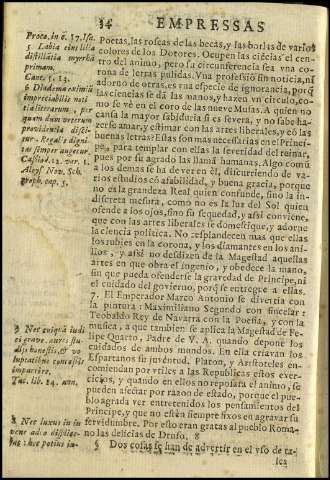 34 EMPRESSAS
Poetas, las roscas de las becas, y las borlas de varios
colores de los Dotores. Ocupen las ciēcias el centro
del animo, pero su circunferencia sea vna corona
de letras pulidas. Vna professió sin noticia, ni
adorno de otras, es vna especie de ignorancia, porq̃
las ciencias se dā las manos, y hazen vn circulo, como
se vè en el coro de las nueve Musas. A quien no
cansa la mayor sabiduria si es severa, y no sabe hazerse
amar, y estimar con las artes liberales, y có las
buenas letras? Estas son mas necessarias en el Principe,
para templar con ellas la severidad del reinar,
pues por su agrado las llamā humanas. Algo comū
a los demas se ha de ver en èl, discurriendo de varios
estudios có afabilidad, y buena gracia, porque
no es la grandeza Real quien confunde, sino la indiscreta
mesura, como no es la luz del Sol quien
ofende a los ojos, sino su sequedad, y assi conviene,
que con las artes liberales se domestique, y adorne
la ciencia politica. No resplandecen mas que ellas
los rubies en la corona, y los diamantes en los anillos,
y assi no desdizen de la Magestad aquellas
artes en que obra el ingenio, y obedece la mano,
sin que pueda ofenderse la gravedad de Principe, ni
el cuidado del govierno, porq̃ se entregue a ellas.
7. El Emperador Marco Antonio se divertia con
la pintura: Maximiliano Segundo con sincelar:
Teobaldo Rey de Navarra con la Poesia, y con la
musica, a que tambien se aplica la Magestad de Felipe
Quarto, Padre de V. A. quando depone los
cuidados de ambos mundos. En ella criavan los
Espartanos su juventud. Platon, y Aristoteles encomiendan
por vtiles a las Republicas estos exercicios,
y quando en ellos no reposara el animo, se
pueden afectar por razon de estado, porque el pueblo
agrada ver entretenidos los pensamientos del
Principe, y que no estèn siempre fixos en agravar su
servidumbre. Por esto eran gratas al pueblo Romano
las delicias de Druso. 8
§ Dos cosas se han de advertir en el vso de ta-
les
Prouo, in c. 17. Isa.
5 Labia eius lilia
distillātia myrrhā
primam.
Cant. 5. 13.
6 Diadema eximiū
impreciabilis notitia
litterarum, per
quam dum veterum
providentia discitur,
Regalis dignitas
semper augetur.
Casiod. 12. var. 1.
7 Nec cuiquā iudici
grave, aures studijs
honestis, & voluptatibus
concessis
impartire.
Tac. lib. 14. ann.
8 Nec luxus in iuvene
adeo displicebat:
huc potius in-